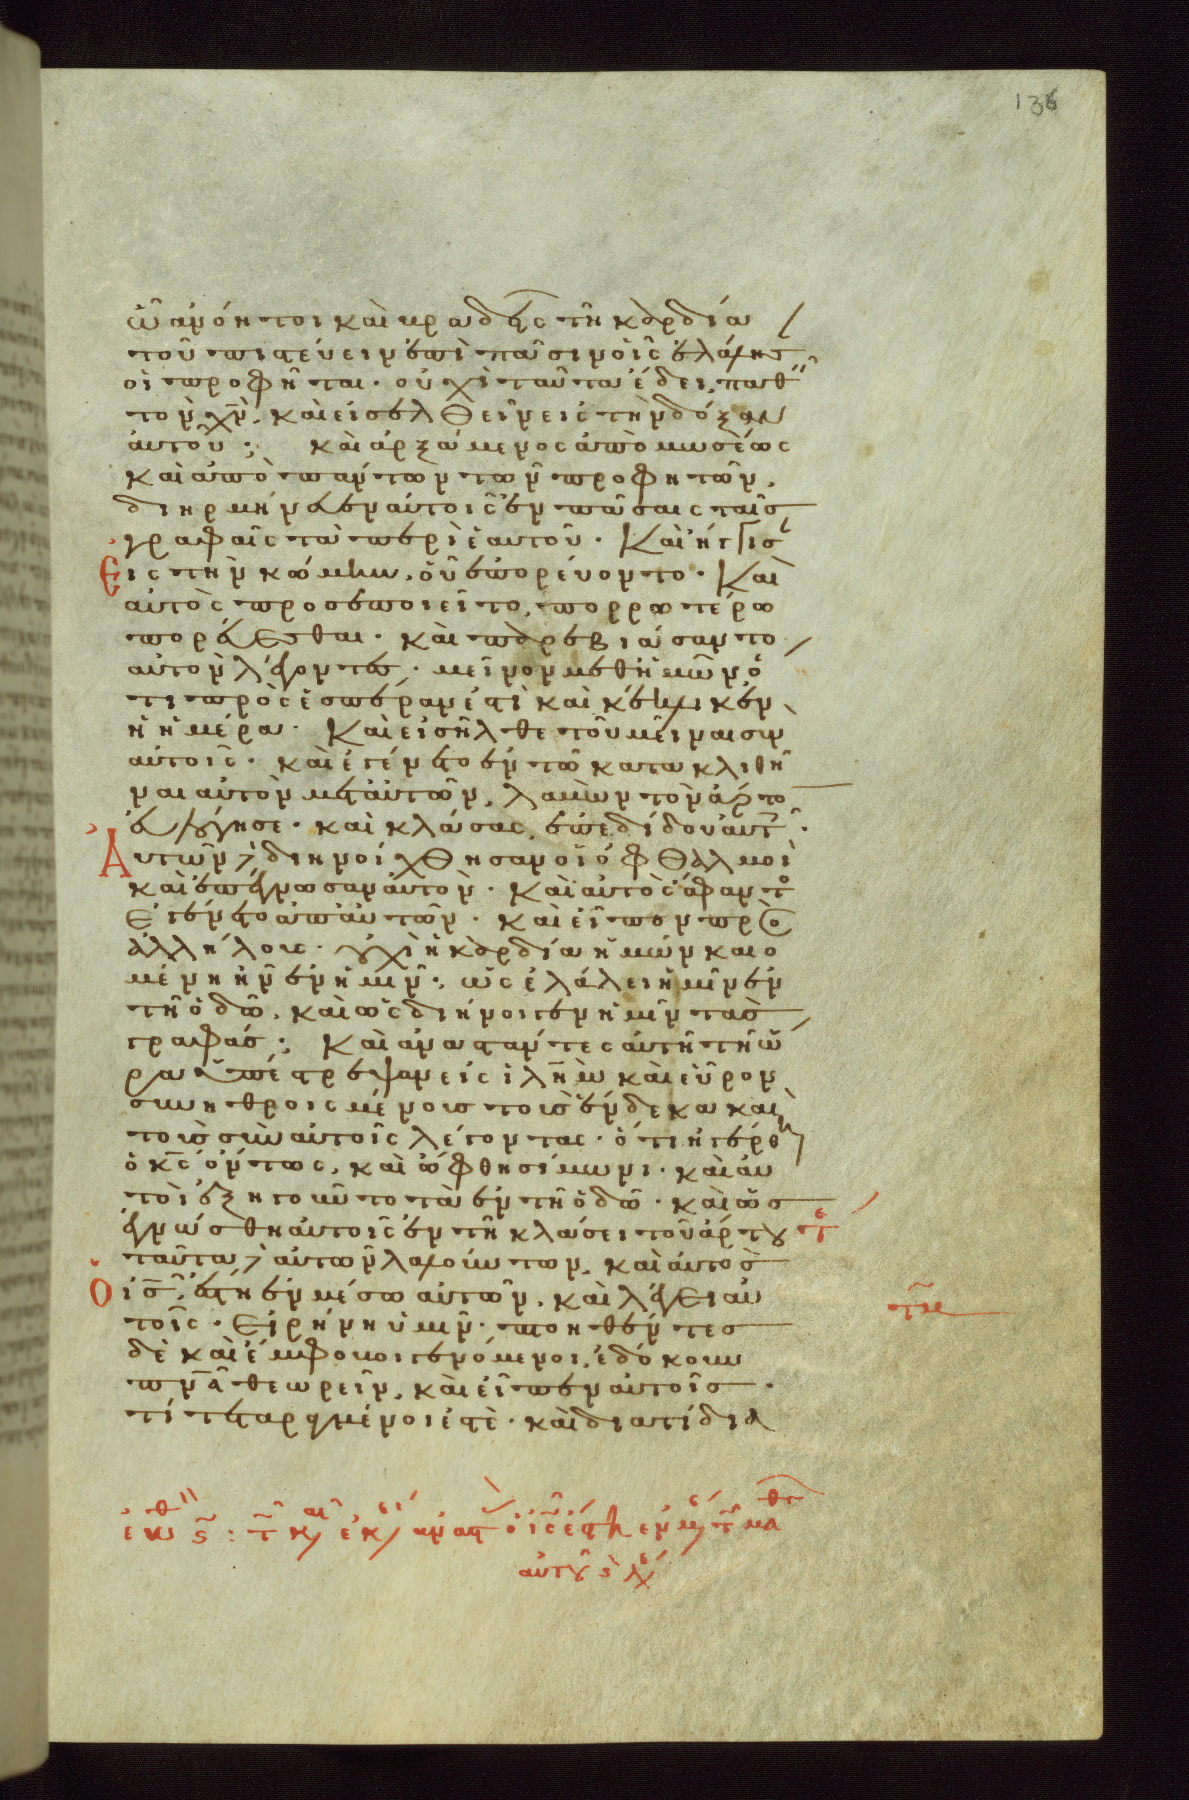 136
ὦ ἀνόητοι καὶ βραδεῖς τῆ καρδία
τοῦ πιστεύειν ἐπὶ πᾶσιν οἷς ἐλάλησ
οἱ προφῆται· οὐχὶ ταῦτα ἔδει παθεῖν
τὸν χν, καὶ εἰσελθεῖν εἰς τὴν δόξαν
αὐτοῦ; καὶ ἀρξάμενος ἀπὸ μωσέως
καὶ ἀπὸ πάντων τῶν προφητῶν,
διηρμήνευεν αὐτοῖς ἐν πάσαις ταῖς
γραφαῖς τὰ περὶ ἑαυτοῦ· Καὶ ἤγγισ
εἰς τὴν κώμην, οὗ ἐπορεύοντο· Καὶ
αὐτὸς προσεποιεῖτο, πορρωτέρω
πορεύεσθαι· καὶ παρεβιάσαντο
αὐτὸν λέγοντες· μεῖνον μεθ ἡμῶν ὅ
τι πρὸς ἑσπέραν ἐστὶ καὶ κέκλικεν
ἡ ἡμέρα· Καὶ εἰσῆλθε τοῦ μεῖναι σὺν
αὐτοῖς· καὶ ἐγένετο ἐν τῶ κατακλιθῆ
ναι αὐτὸν μετ αὐτῶν, λαβὼν τὸν ἄρτο
εὐλόγησε· καὶ κλάσας, ἐπεδίδου αὐτοῖς·
Αὐτῶν δὲ διηνοίχθησαν οἱ ὀφθαλμοὶ
καὶ ἐπέγνωσαν αὐτόν· Καὶ αὐτὸς ἄφαντο
ἐγένετο ἀπ αὐτῶν· καὶ εἶπον πρὸς
ἀλλήλους· οὐχὶ ἡ καρδία ἡμῶν καιο
μένη ἦν ἐν ἡμῖν, ὡς ἐλάλει ἡμῖν ἐν
τῆ ὁδῶ, καὶ ὡς διήνοιγεν ἡμῖν τὰς
γραφάς; Καὶ ἀναστάντες αὐτῆ τῆ ὥ
ρα ὑπέστρεψαν εἰς ἰλημ καὶ εὗρον
συνηθροισμένους τοὺς ἕνδεκα καὶ
τοὺς σὺν αὐτοῖς λέγοντας· ὅτι ἠγέρθη
ὁ κς ὄντως, καὶ ὤφθη σίμωνι· καὶ αὐ
τοὶ ἐξηγοῦντο τὰ ἐν τῆ ὁδῶ· καὶ ὡς
ἐγνώσθη αὐτοῖς ἐν τῆ κλάσει τοῦ ἄρτου
ταῦτα δὲ αὐτῶν λαλούντων, καὶ αὐτὸς
ὁ ις, ἔστη ἐν μέσω αὐτῶν, καὶ λέγει αὐ
τοῖς· Εἰρήνη ὑμῖν· πτοηθέντες
δὲ καὶ ἔμφοβοι γενόμενοι, ἐδόκουν
πνα θεωρεῖν, καὶ εἶπεν αὐτοῖς·
τί τεταραγμένοι ἐστὲ· καὶ διατί δια